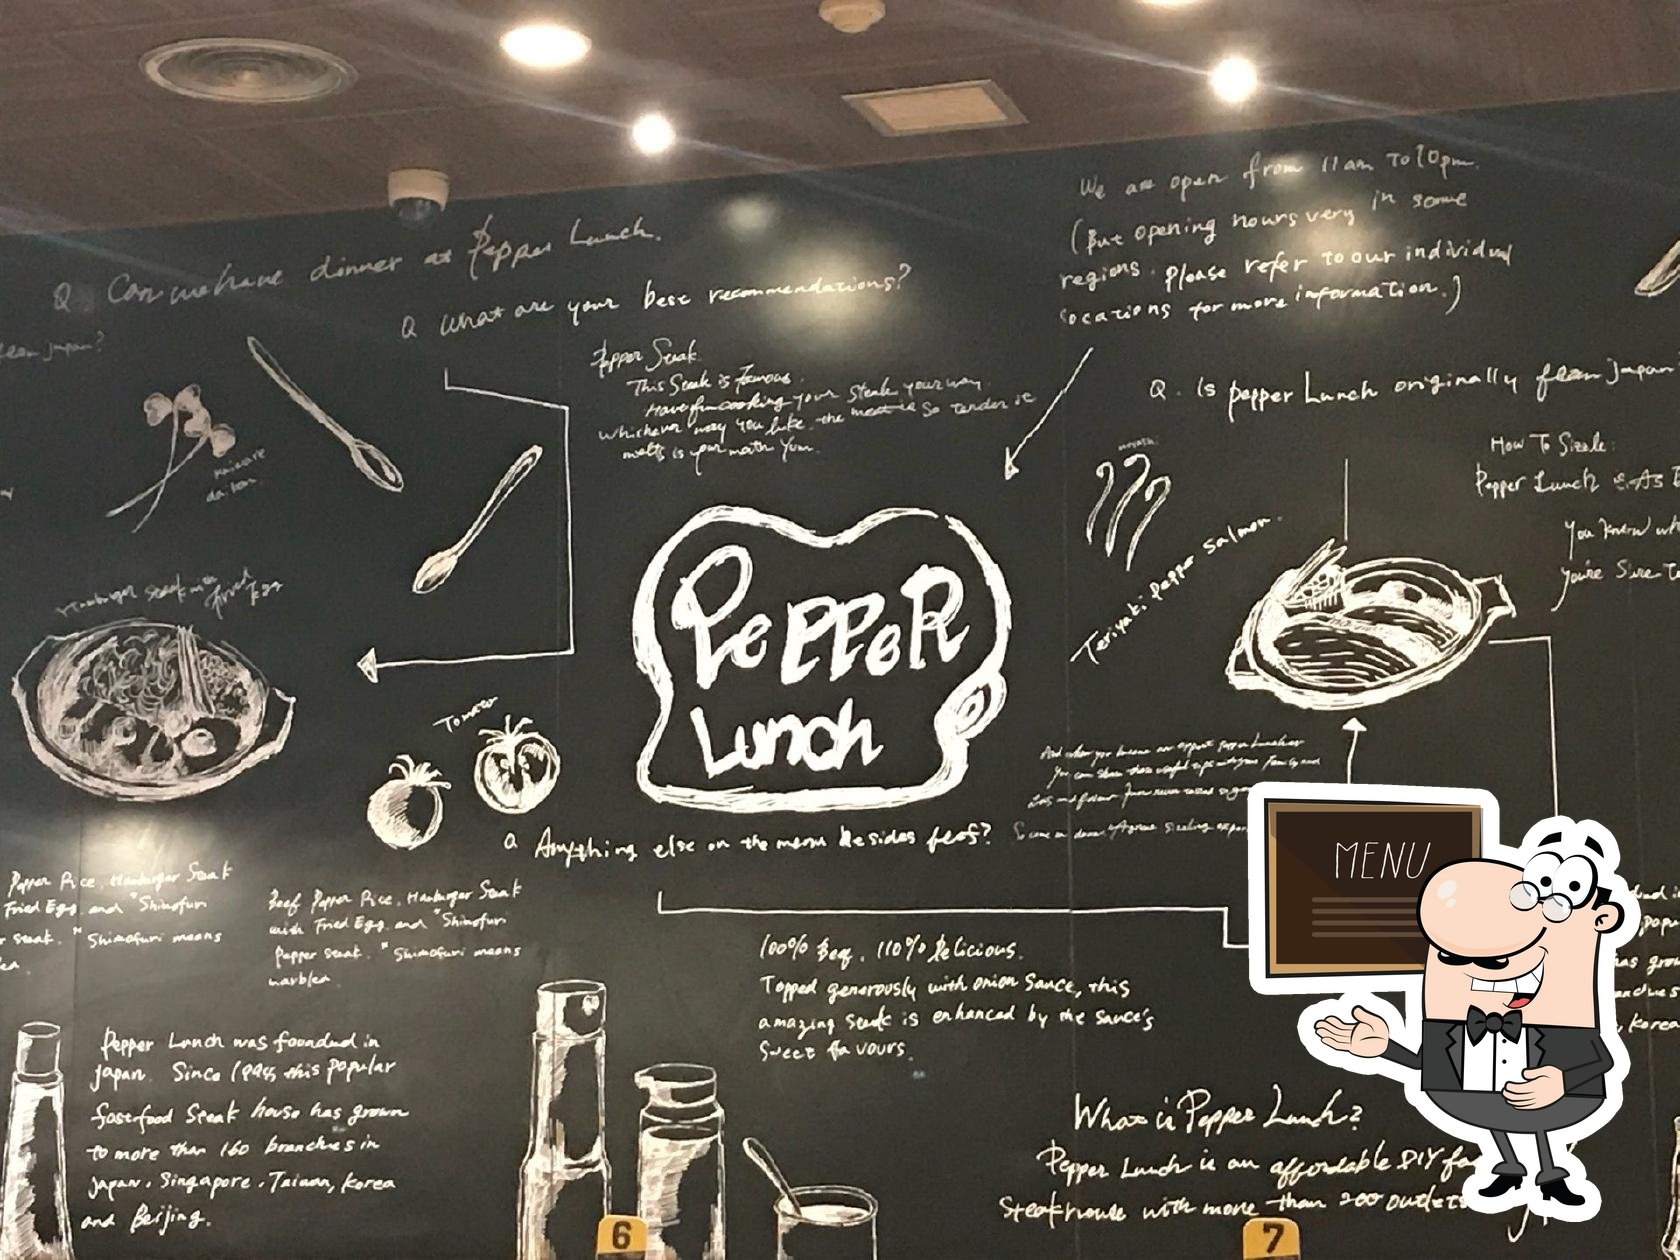 We are open from 11am To 10pm.
(But opening hours very in some
regions. please refer to our individual
locations for more information.)
Q Can we have dinner at Pepper Lunch.
Q What are your best recommendations?
Japan?
Pepper Steak
This Steak is famous.
Have fun cooking your Steak your way.
Whichever way you like. the meat is so tender it
melts is your moth Yum.
Q. Is pepper Lunch originally from Japan
How To Sizzle:
Pepper Lunch is As E
You know wh
you're Sure T
kaiware
daikon
moyashi
Teriyaki Pepper Salmon.
Hamburger Steak with Fried Egg
PePPeR
Lunch
Tomato
You can share these useful tips with your Family and
Q Anything else on the menu besides beef?
Pepper Rice, Hamburger Steak
Fried Egg and "Shimofuri
r steak." Shimofuri means
Beef Pepper Rice, Hamburger Steak
with Fried Egg and "Shimofuri
Pepper steak." Shimofuri means
marbled.
100% Beef, 110% Delicious.
Topped generously with onion Sauce, this
amazing steak is enhanced by the sauce's
Sweet flavours.
Pepper Lunch was founded in
Japan. Since 1994, this popular
fast-food Steak house has grown
to more than 160 branches in
Japan, Singapore, Taiwan, Korea
and Beijing.
What is Pepper Lunch?
Pepper Lunch is an affordable DIY fa
Steakhouse with more than 200 outlets
MENU
has grow
, Korea
6
7